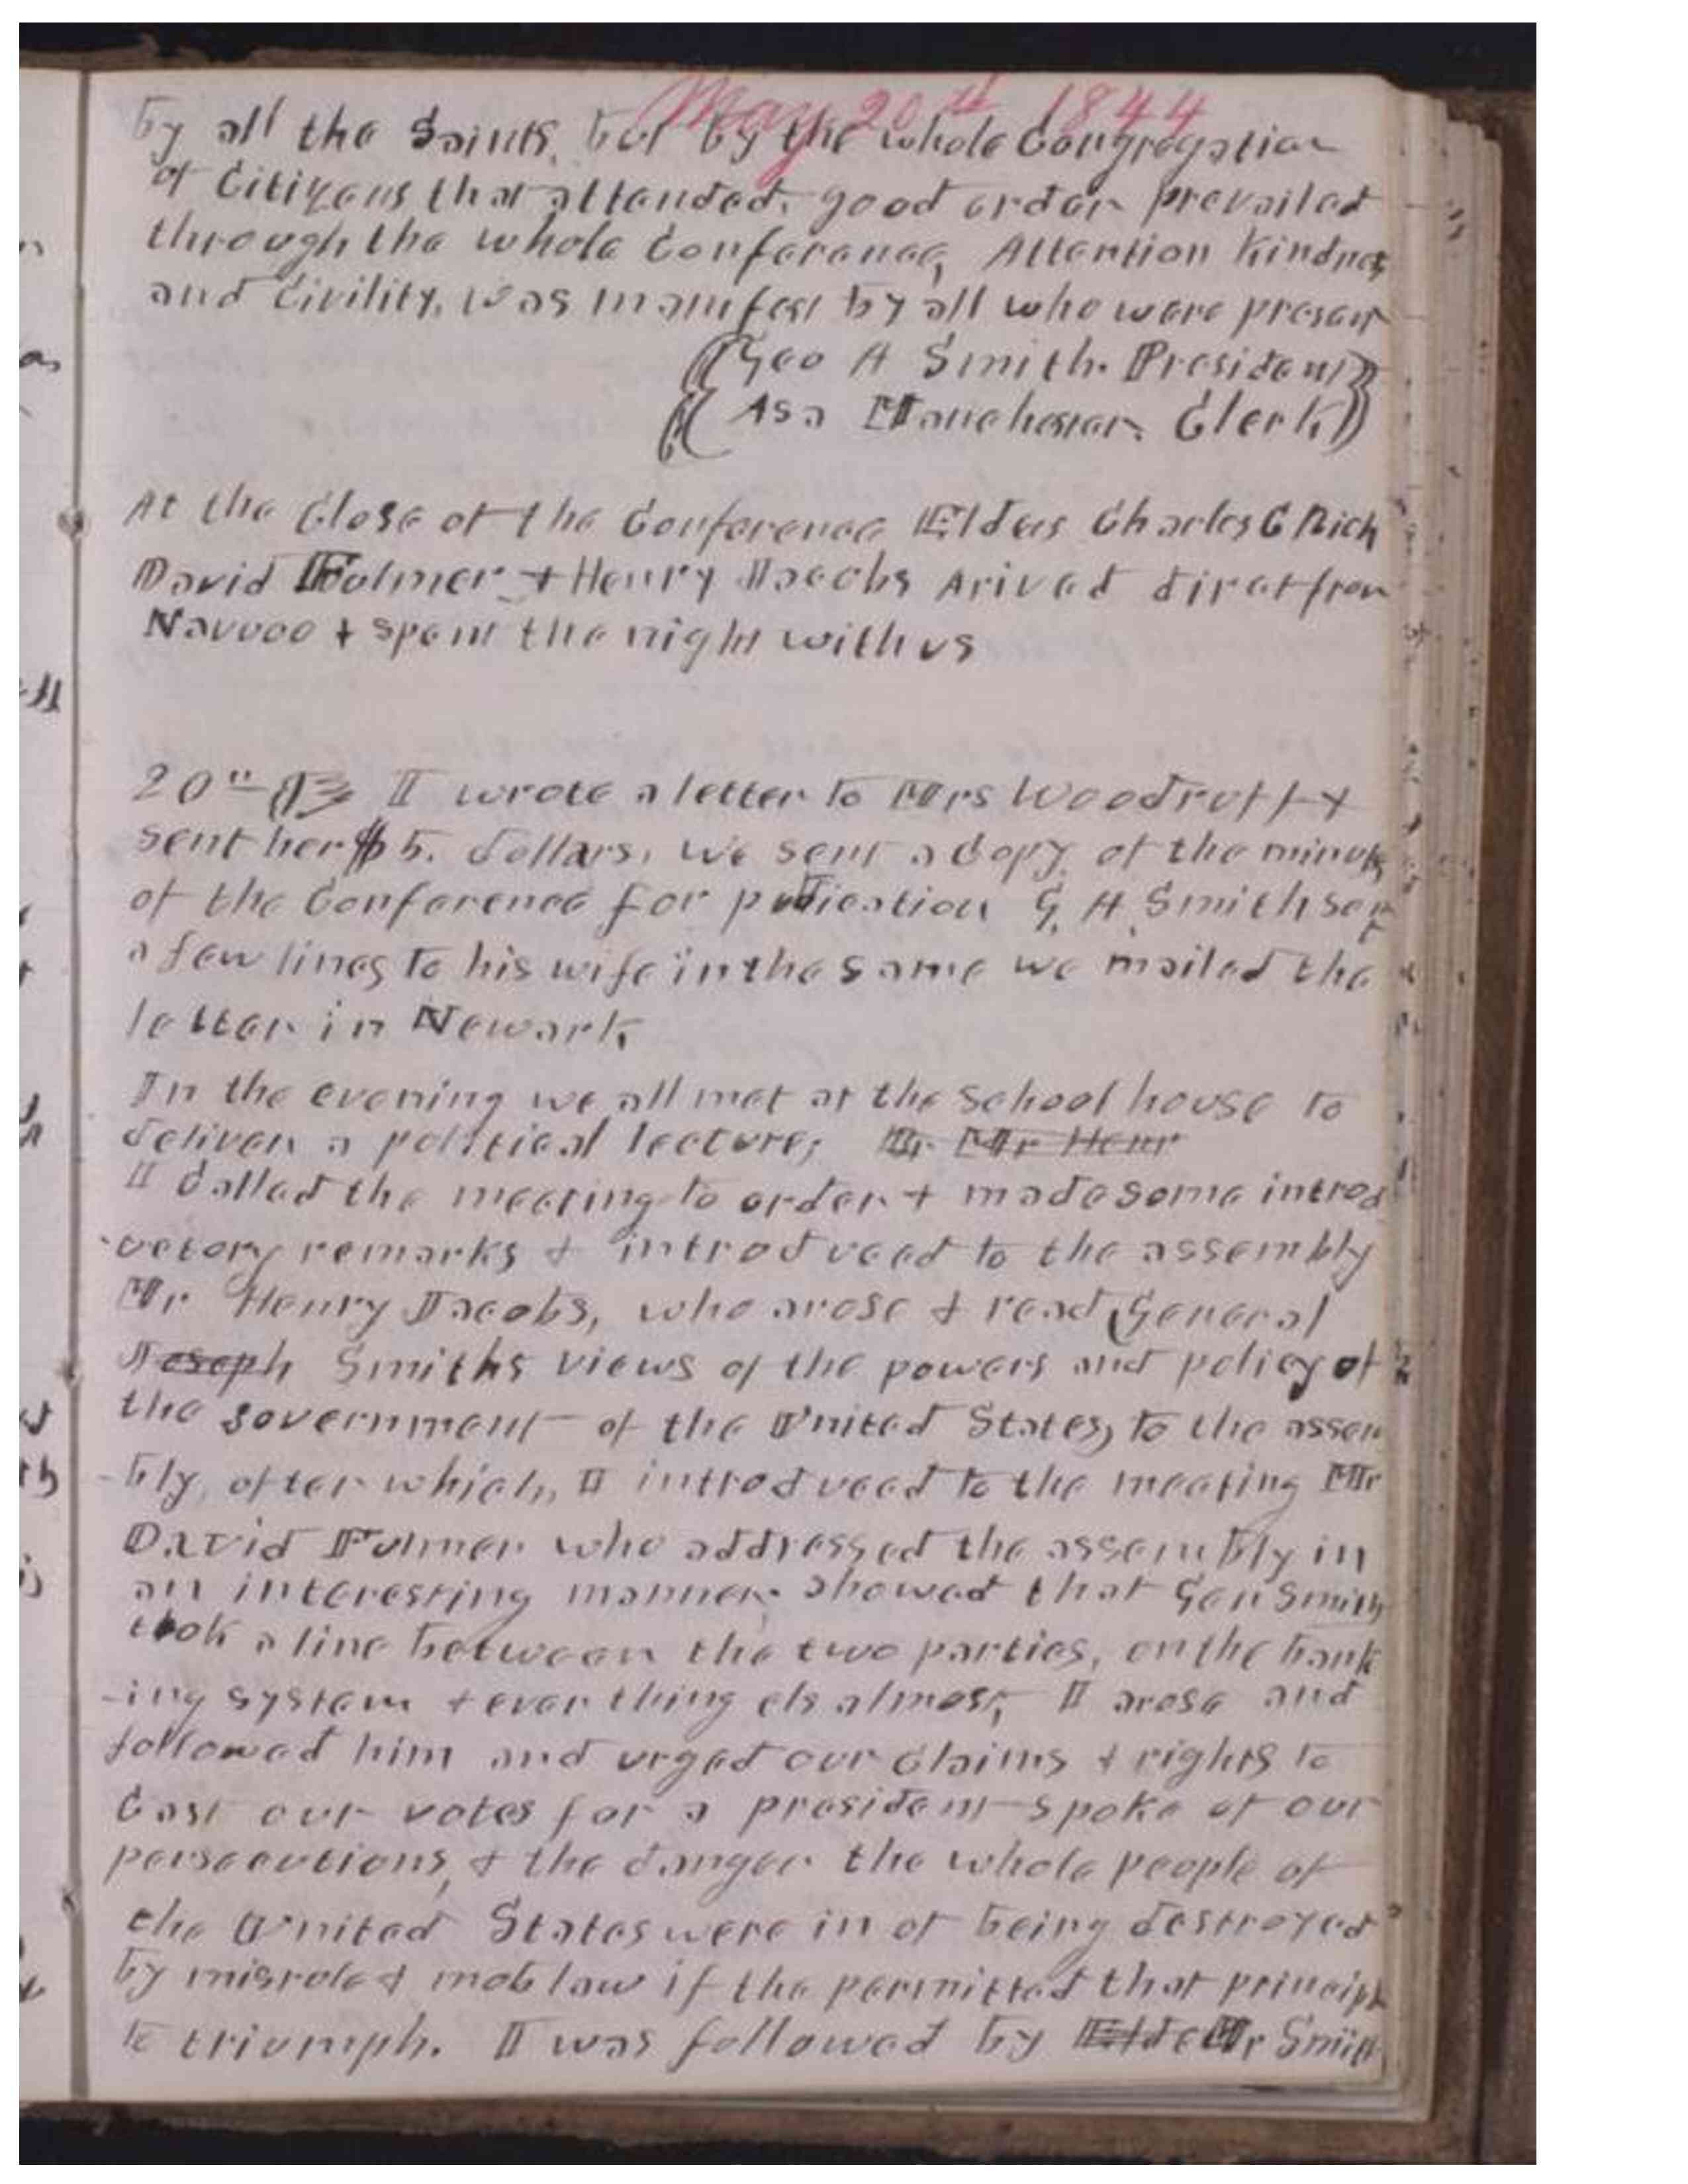 May 20th 1844
by all the Saints, but by the whole Congregation
of Citizens that attended. good order prevailed
through the whole Conference, Attention Kindness
and Civility, was manifest by all who were present
Geo A Smith. President
Asa Manchester. Clerk
At the Close of the Conference Elders Charles C Rich
David Fulmer + Henry Jacobs Arived dire t from
Nauvoo + spent the night with us
20th I wrote a letter to Mrs Woodruff +
sent her $5. dollars, we sent a Copy of the minutes
of the Conference for publication G. A. Smith sent
a few lines to his wife in the same we mailed the
letter in Newark,
In the evening we all met at the school house to
deliver a political lecture; Mr Henr
I Called the meeting to order + made some introd
-uctory remarks + introduced to the assembly
Mr Henry Jacobs, who arose + read General
Joseph Smiths views of the powers and policy of
the government of the United States, to the assem
-bly, after which, I introduced to the meeting Mr
David Fulmer who addressed the assembly in
an interesting manner. showed that Gen Smith
took a line between the two parties, on the bank
-ing system + ever thing els almost, I arose and
followed him and urged our Claims + rights to
Cast our votes for a president spoke of our
persecutions, + the danger the whole people of
the United States were in of being destroyed
by misrule + mob law if the permitted that principle
to triumph. I was followed by Elde Mr Smith